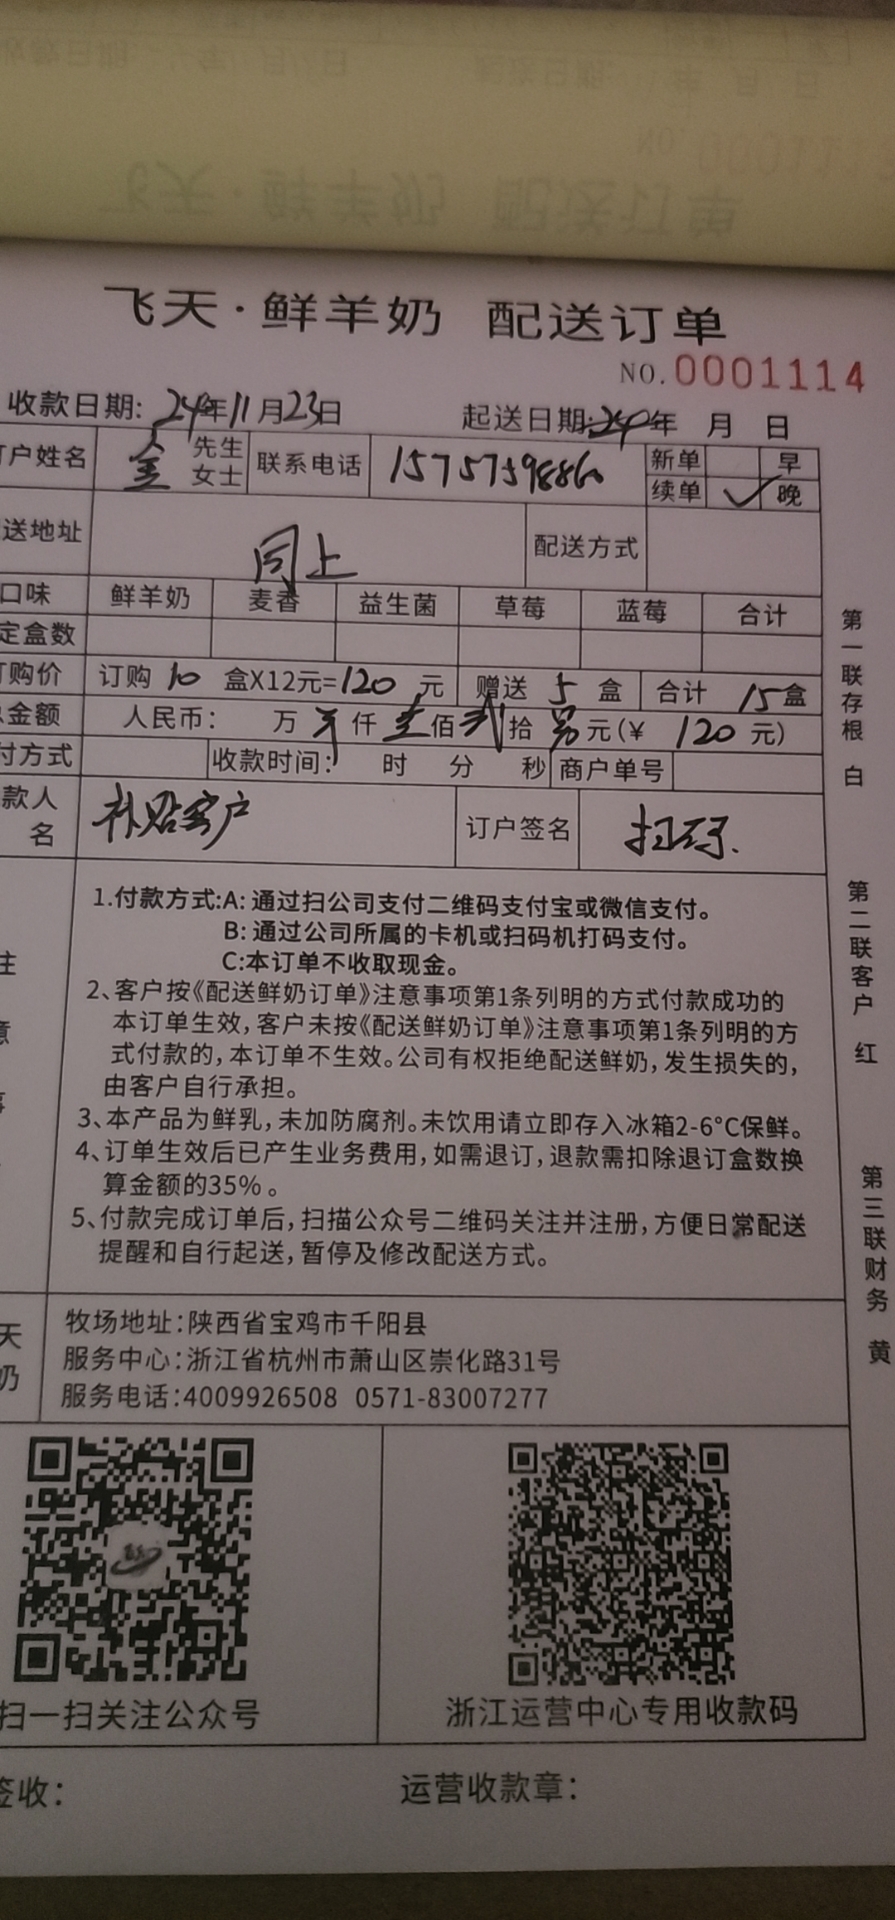 飞天·鲜羊奶 配送订单
NO.0001114
收款日期: 24年11月23日 起送日期: 24年 月 日
订户姓名 金 先生 女士 联系电话 15757598860 新单 早
续单 ✓ 晚
送地址 同上 配送方式
口味 鲜羊奶 麦香 益生菌 草莓 蓝莓 合计
定盒数
订购价 订购 10 盒X12元=120 元 赠送 5 盒 合计 15盒
总金额 人民币: 万 仟 壹佰 贰拾 元(¥ 120 元)
付方式 收款时间: 时 分 秒 商户单号
款人名 补贴客户 订户签名 扫码.
1.付款方式:A: 通过扫公司支付二维码支付宝或微信支付。
B: 通过公司所属的卡机或扫码机打码支付。
C:本订单不收取现金。
2、客户按《配送鲜奶订单》注意事项第1条列明的方式付款成功的
本订单生效,客户未按《配送鲜奶订单》注意事项第1条列明的方
式付款的,本订单不生效。公司有权拒绝配送鲜奶,发生损失的,
由客户自行承担。
3、本产品为鲜乳,未加防腐剂。未饮用请立即存入冰箱2-6°C保鲜。
4、订单生效后已产生业务费用,如需退订,退款需扣除退订盒数换
算金额的35%。
5、付款完成订单后,扫描公众号二维码关注并注册,方便日常配送
提醒和自行起送,暂停及修改配送方式。
注意事
牧场地址:陕西省宝鸡市千阳县
服务中心:浙江省杭州市萧山区崇化路31号
服务电话:4009926508 0571-83007277
天奶
扫一扫关注公众号 浙江运营中心专用收款码
签收: 运营收款章:
第一联存根 白
第二联客户 红
第三联财务 黄